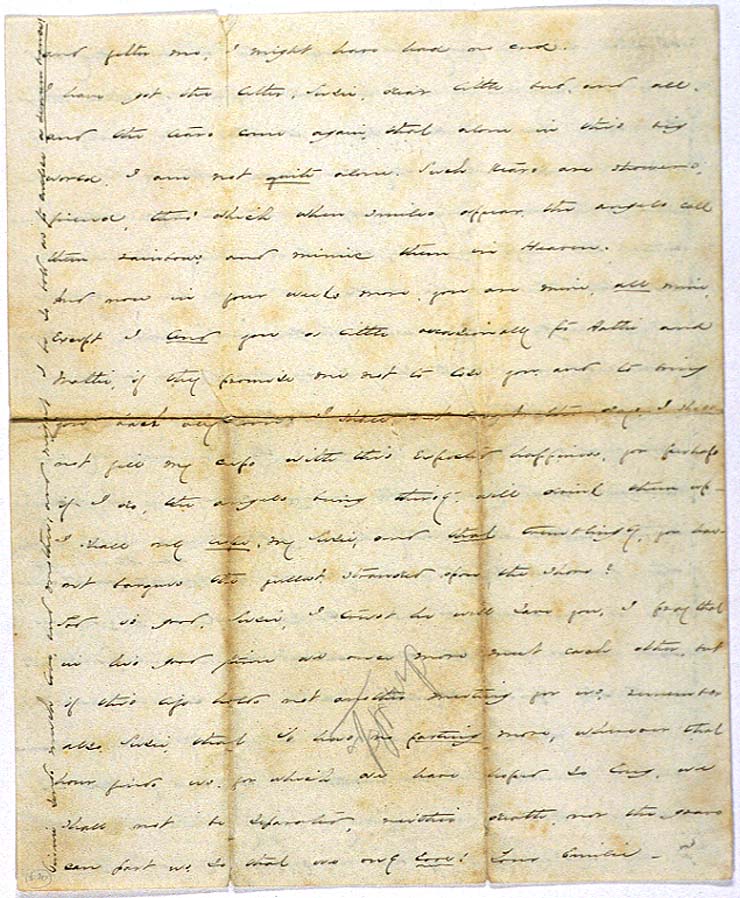 and filter me, I might have had no end.
I have got the letter, Susie, dear little bud, and all,
and the tears came again, that alone in this big
world, I am not quite alone. Such tears are showers,
friend, thro' which when smiles appear, the angels call
them rainbows, and mimic them in Heaven.
And now in four weeks more, you are mine, all mine,
Except I lend you a little occasionally to Hattie and
Mattie, if they promise me not to lose you, and to bring
you back very soon. I shall not count the days. I shall
not fill my cups with this expected happiness, for perhaps
if I do, the angels being thirsty, will drink them up -
I shall only hope, my Susie, and that tremblingly, for hav-
not barques the fullest, stranded upon the shore?
God is good, Susie, I trust he will save you, I pray that
in his good time we once more meet each other, but
if this life holds not another meeting for us, remember
also, Susie, that it had no parting more, wherever that
hour finds us, for which we have hoped so long, we
shall not be separated, neither death, nor the grave
can part us, so that we only love! Your Emilie -
Vinnie sends much love, and Mother, and might I be so bold as to enclose a